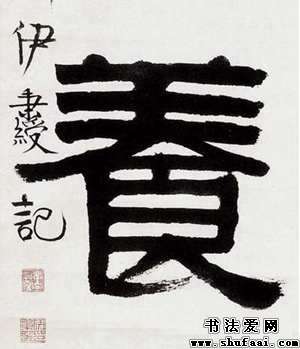 養
伊秉綬記
书法爱网
www.shufaai.com